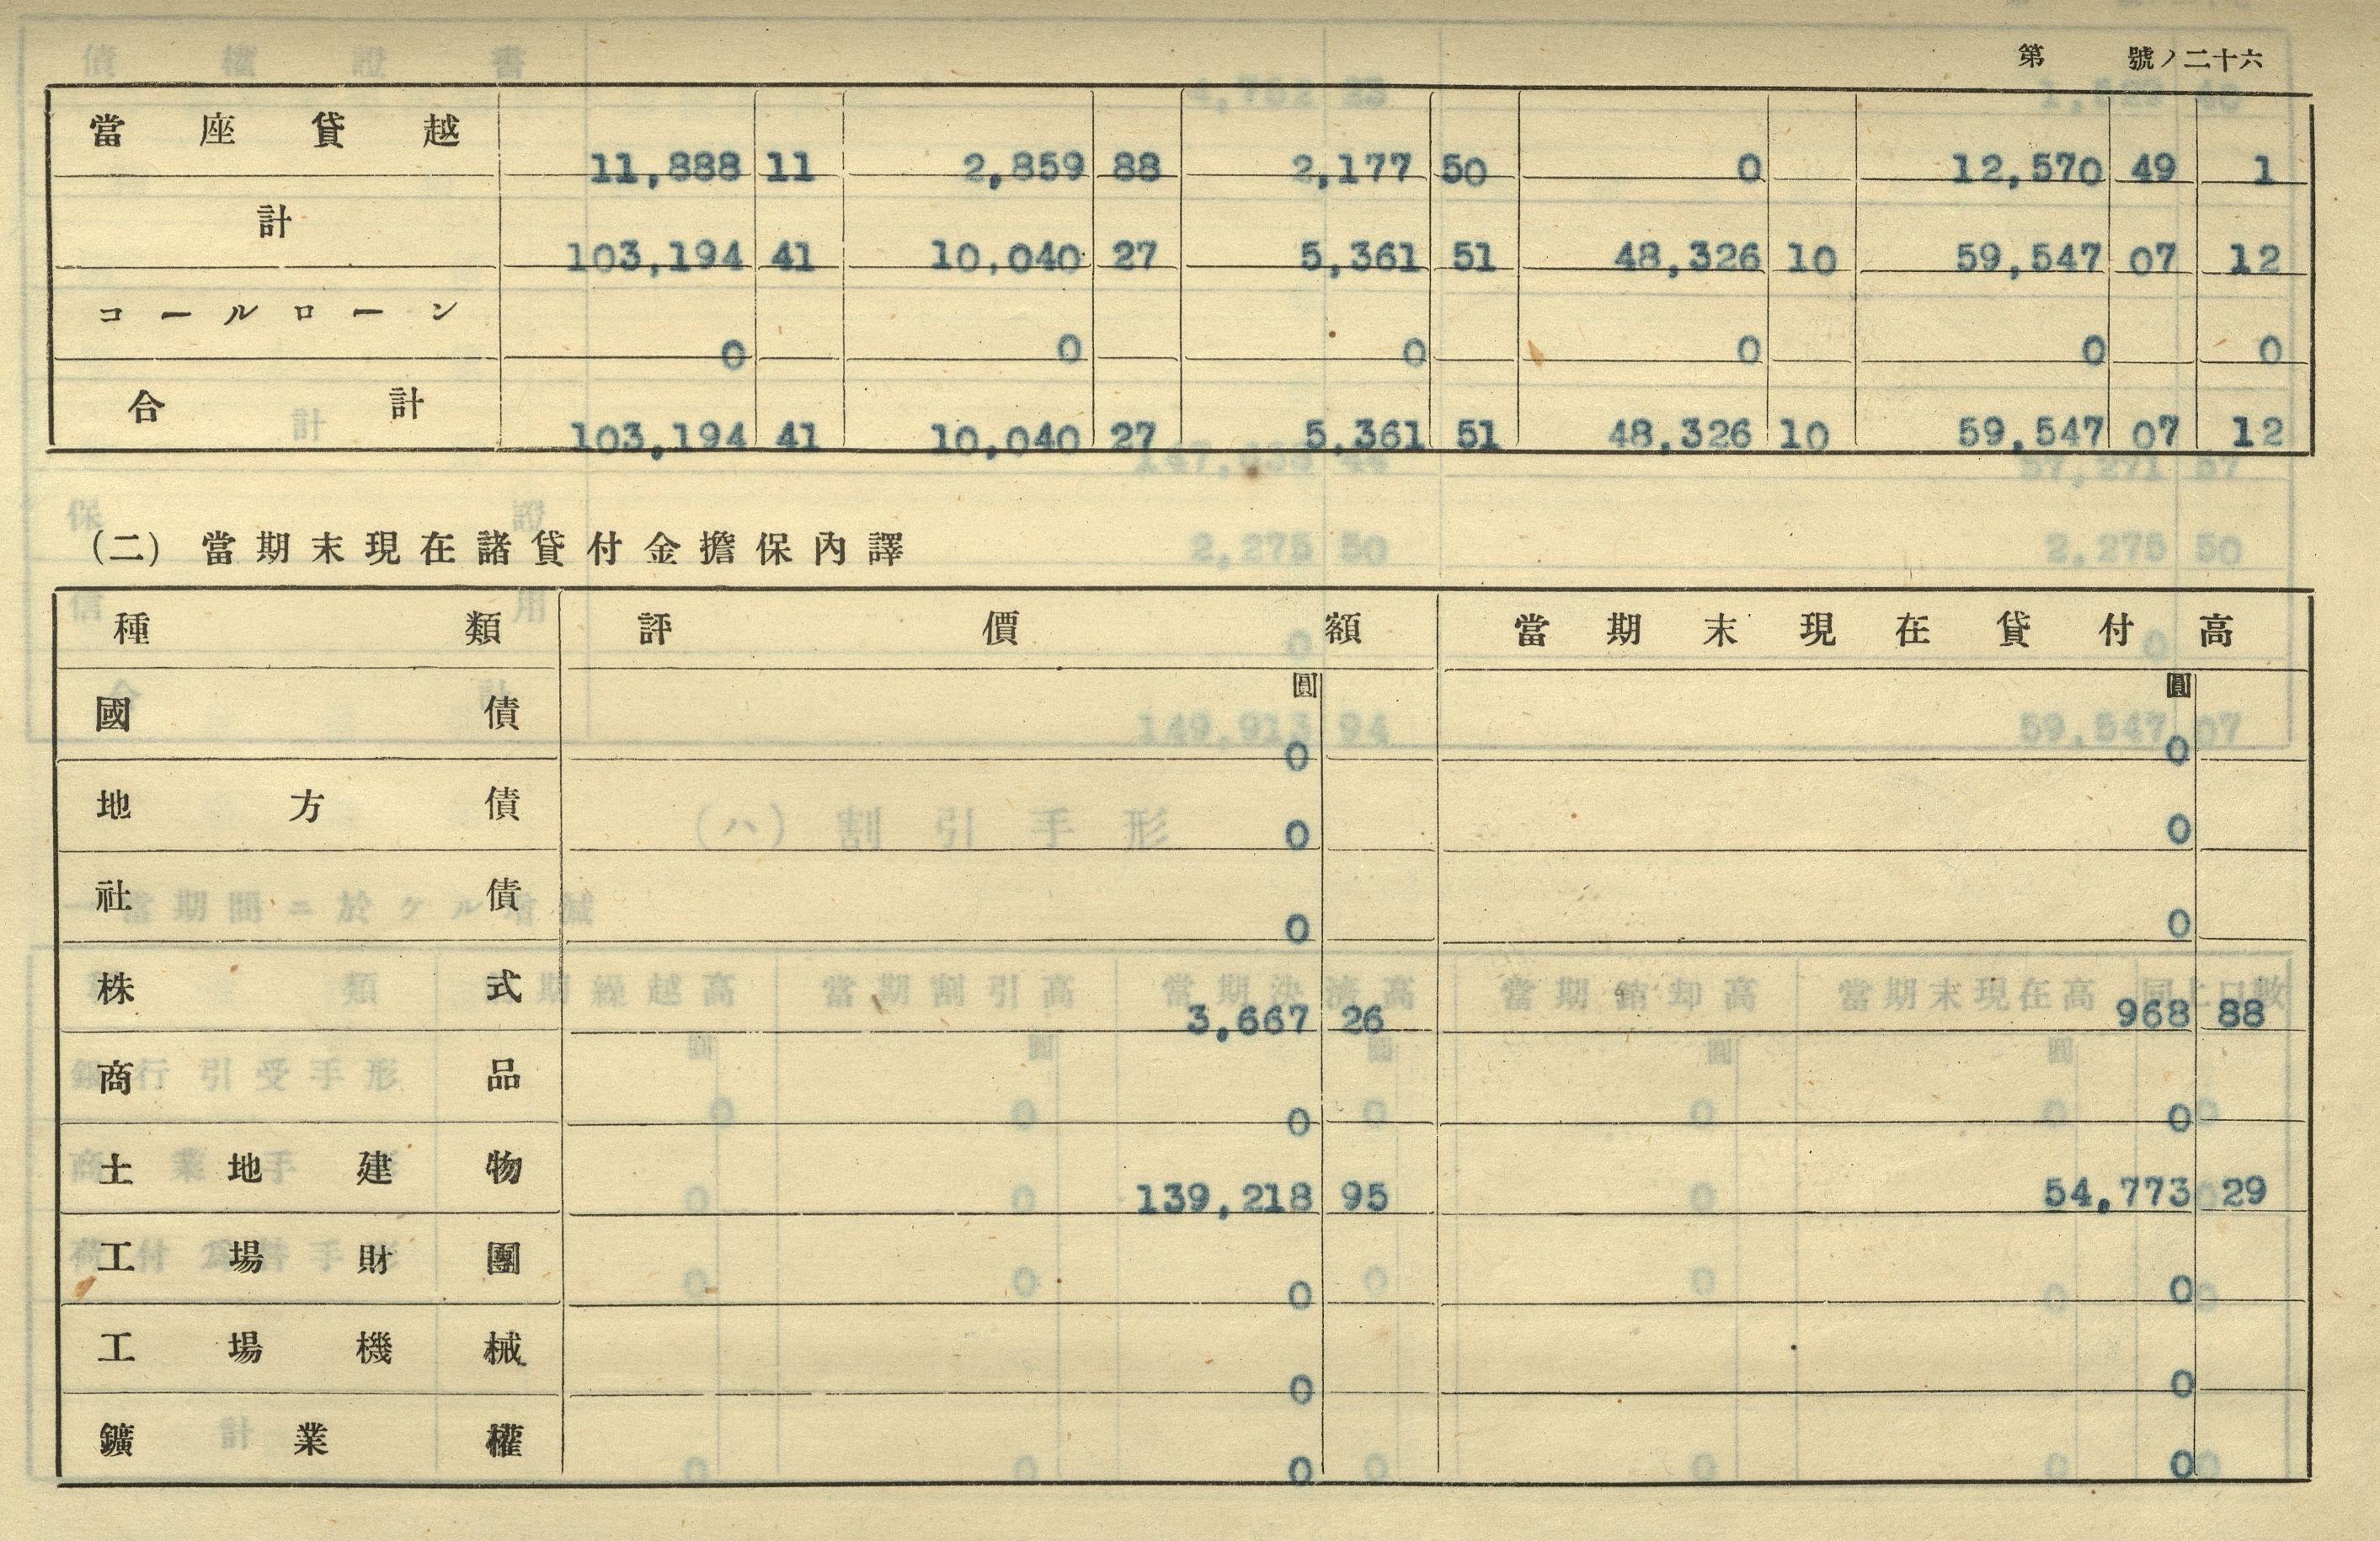 第 號ノ二十六
當座貸越 11,888 11 2,859 88 2,177 50 0 12,570 49 1
計 103,194 41 10,040 27 5,361 51 48,326 10 59,547 07 12
コールローン 0 0 0 0 0 0
合計 103,194 41 10,040 27 5,361 51 48,326 10 59,547 07 12
(二) 當期末現在諸貸付金擔保內譯
種類 評價額 當期末現在貸付高
圓 圓
國債 0 0
地方債 0 0
社債 0 0
株式 3,667 26 968 88
商品 0 0
土地建物 139,218 95 54,773 29
工場財團 0 0
工場機械 0 0
鑛業權 0 0